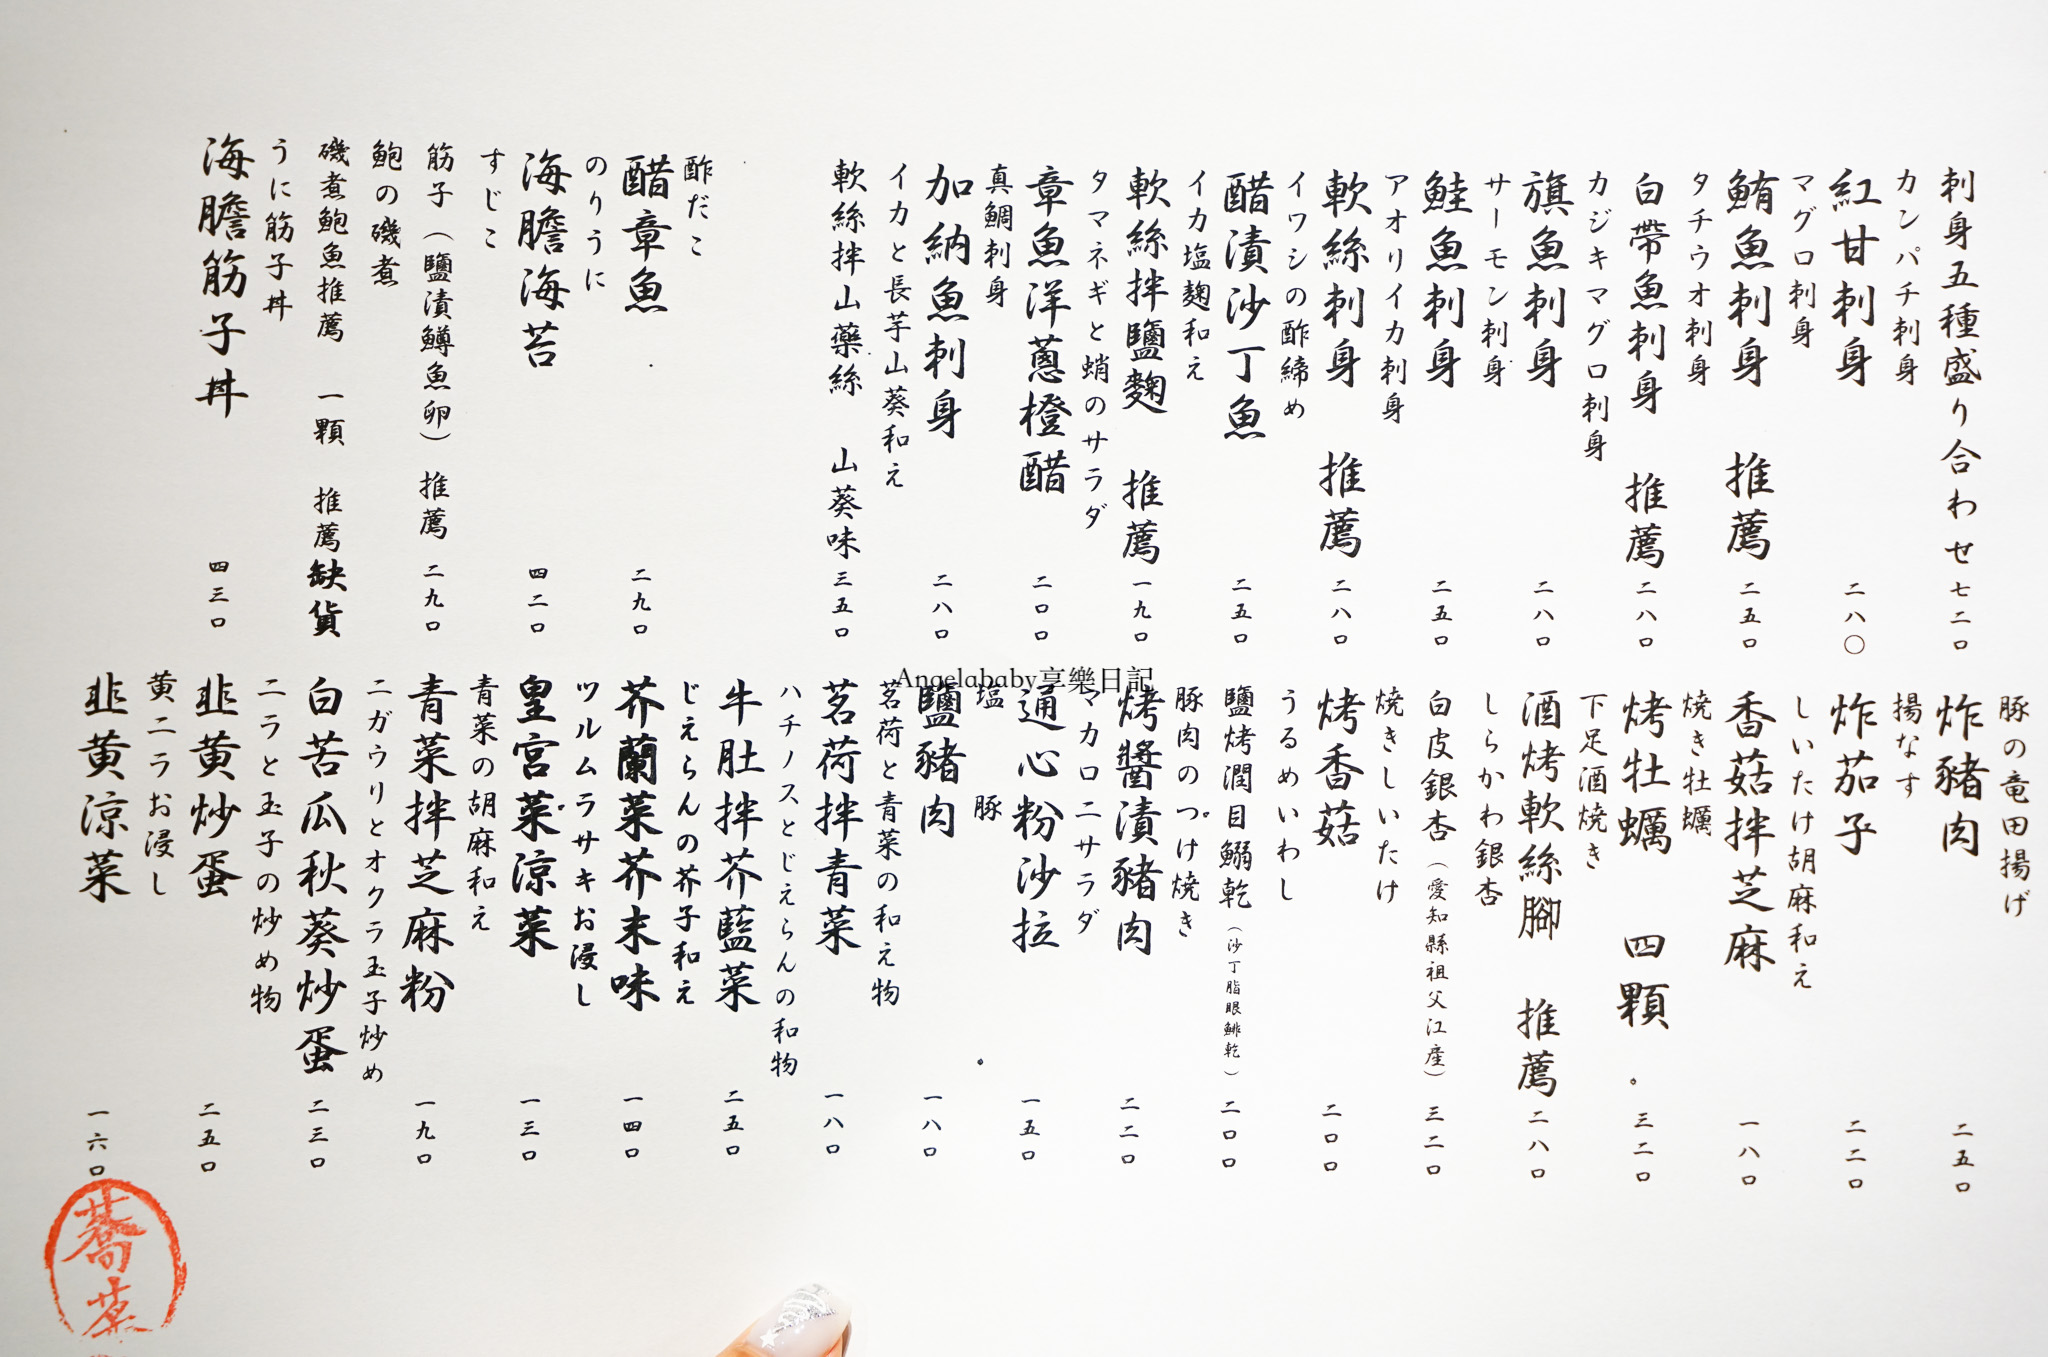 刺身五種盛り合わせ 七二〇
カンパチ刺身
紅甘刺身 二八〇
マグロ刺身
鮪魚刺身 推薦 二五〇
タチウオ刺身
白帶魚刺身 推薦 二八〇
カジキマグロ刺身
旗魚刺身 二八〇
サーモン刺身
鮭魚刺身 二五〇
アオリイカ刺身
軟絲刺身 推薦 二八〇
イワシの酢締め
醋漬沙丁魚 二五〇
イカ塩麹和え
軟絲拌鹽麴 推薦 一九〇
タマネギと蛸のサラダ
章魚洋蔥橙醋 二〇〇
真鯛刺身
加納魚刺身 二八〇
イカと長芋山葵和え
軟絲拌山藥絲 山葵味 三五〇
酢だこ
醋章魚 二九〇
のりうに
海膽海苔 四二〇
すじこ
筋子（鹽漬鱒魚卵） 推薦 二九〇
鮑の磯煮
磯煮鮑魚推薦 一顆 推薦 缺貨
うに筋子丼
海膽筋子丼 四三〇
豚の竜田揚げ
炸豬肉 二五〇
揚なす
炸茄子 二二〇
しいたけ胡麻和え
香菇拌芝麻 一八〇
焼き牡蠣
烤牡蠣 四顆 三二〇
下足酒焼き
酒烤軟絲腳 推薦 二八〇
しらかわ銀杏
白皮銀杏（愛知縣祖父江産） 三二〇
焼きしいたけ
烤香菇 二〇〇
うるめいわし
鹽烤潤目鰯乾（沙丁脂眼鯡乾） 二〇〇
豚肉のつけ焼き
烤醬漬豬肉 二二〇
マカロニサラダ
通心粉沙拉 一五〇
塩 豚
鹽豬肉 一八〇
茗荷と青菜の和え物
茗荷拌青菜 一八〇
ハチノスとじえらんの和物
牛肚拌芥藍菜 二五〇
じえらんの芥子和え
芥蘭菜芥末味 一四〇
ツルムラサキお浸し
皇宮菜涼菜 一三〇
青菜の胡麻和え
青菜拌芝麻粉 一九〇
ニガウリとオクラ玉子炒め
白苦瓜秋葵炒蛋 二三〇
ニラと玉子の炒め物
韭黄炒蛋 二五〇
黄ニラお浸し
韭黄涼菜 一六〇
Angelababy享樂日記
蕎